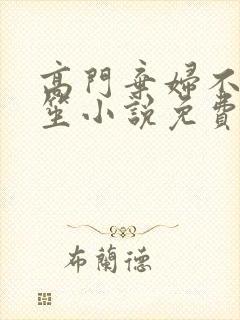 高門棄婦不
笙小說免費
布蘭德